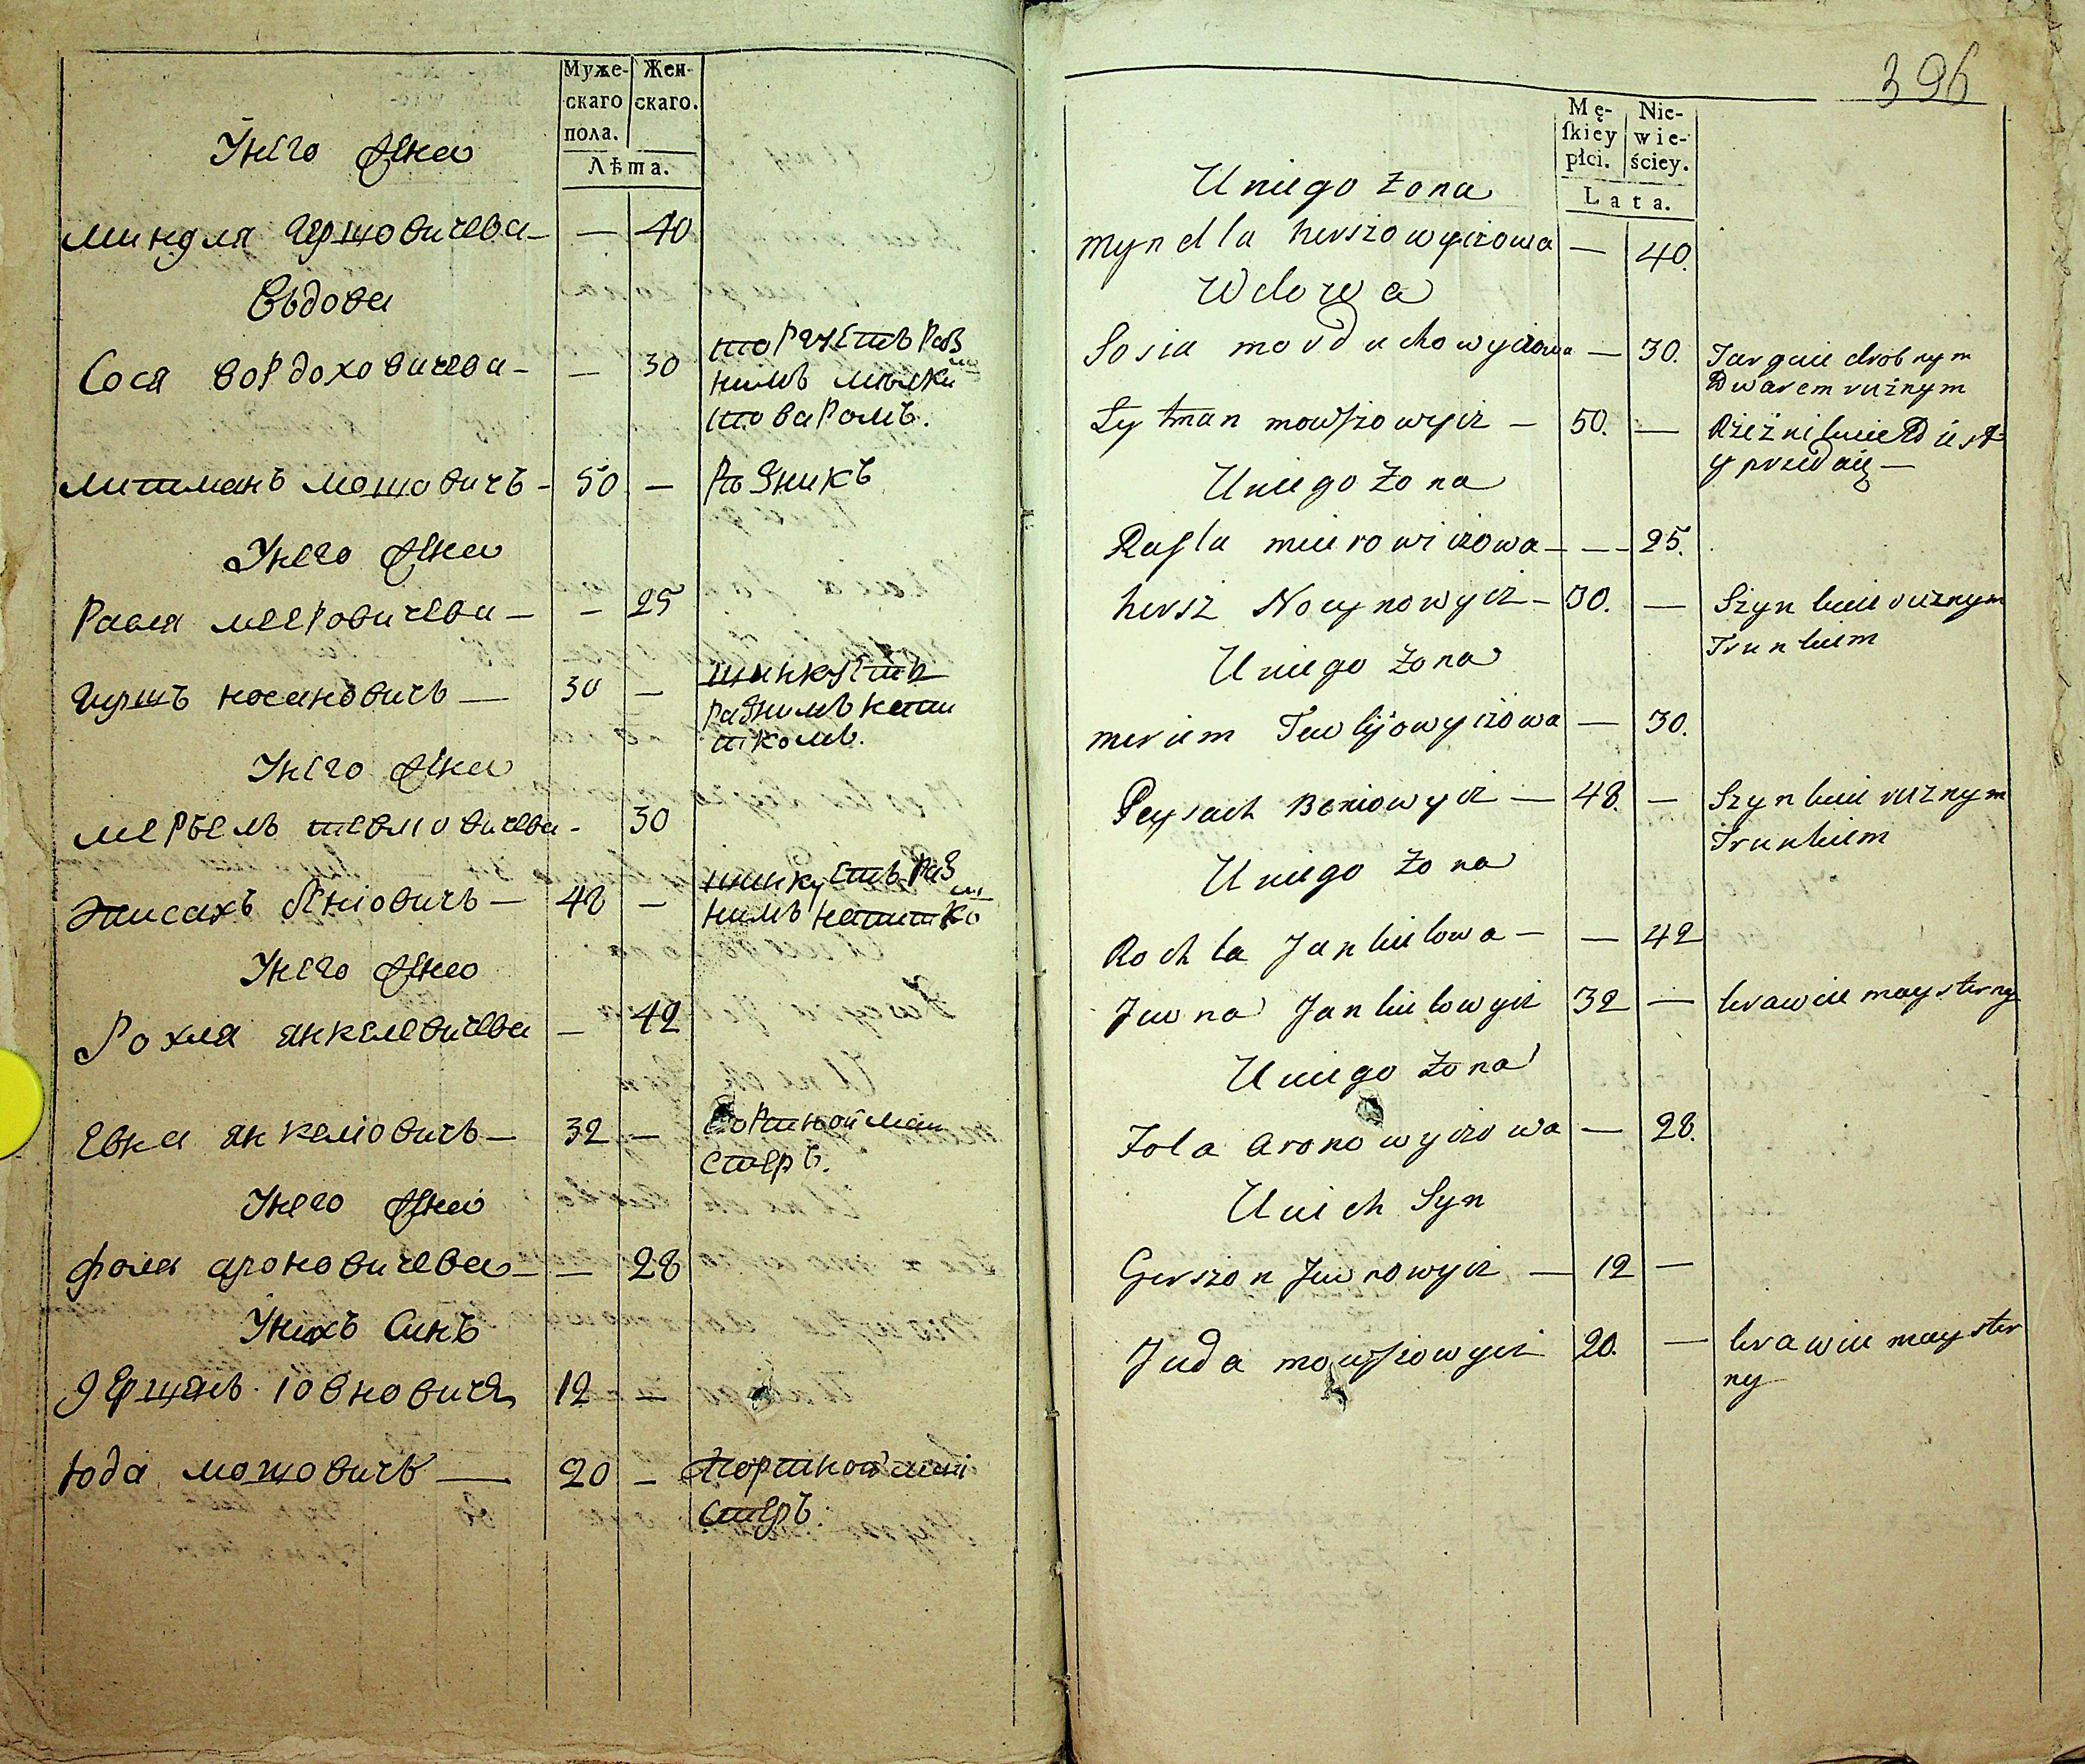 Муже-
скаго
пола.
Жен-
скаго.
Лѣта.
Унего жена
миндля гершовичева — — 40
Вьдова
Сося мордоховичева — — 30
торгуетъ раз
нимъ мылки
товаромъ.
литманъ мошовичъ — 50 — рѣзникъ
Унего жена
Расля мееровичева — — 25
гиршъ носиновичъ — 30 —
шинкуетъ
разнимъ напи
ткомъ.
Унего жена
мерьемъ тевліовичева - 30
Эйсахъ беніовичъ — 48 —
шинкуетъ раз
нимъ напитко
Унего жена
Рохля янкелевичева — 42
Евна янкеліовичъ — 32 —
Портной маи
стеръ.
Унего жена
фоля ароновичева — — 28
Унихъ Синъ
Гершанъ іовновичъ 12 —
Юда мошовичъ — 20 —
Портной маі
стеръ.
396
Mę-
ſkiey
płci.
Nie-
wie-
ściey.
Lata.
Uniego żona
Myndla herszowyczowa — 40.
Wdowa
Sosia morduchowyczowa — 30.
Targuie drobnym
Towarem rużnym
Lytman mowszowycz — 50. —
Rzeźnikuie
y przedaię —
Uniego żona
Rasla mierowiczowa — — 25.
hersz Nocynowycz — 30. —
Szynkuie rużnym
Trunkiem
Uniego żona
meriem Tewlijowyczowa — 30.
Peysach Beniowycz — 48. —
Szynkuie rużnym
Trunkiem
Uniego żona
Rochla Jankielowa — — 42
Juwna Jankielowycz 32 — krawiec maysterny
Uniego żona
Fola aronowyczowa — 28.
Unich Syn
Gerszon Juwnowycz — 12 —
Juda mowszowycz 20. —
krawiec mayster
ny